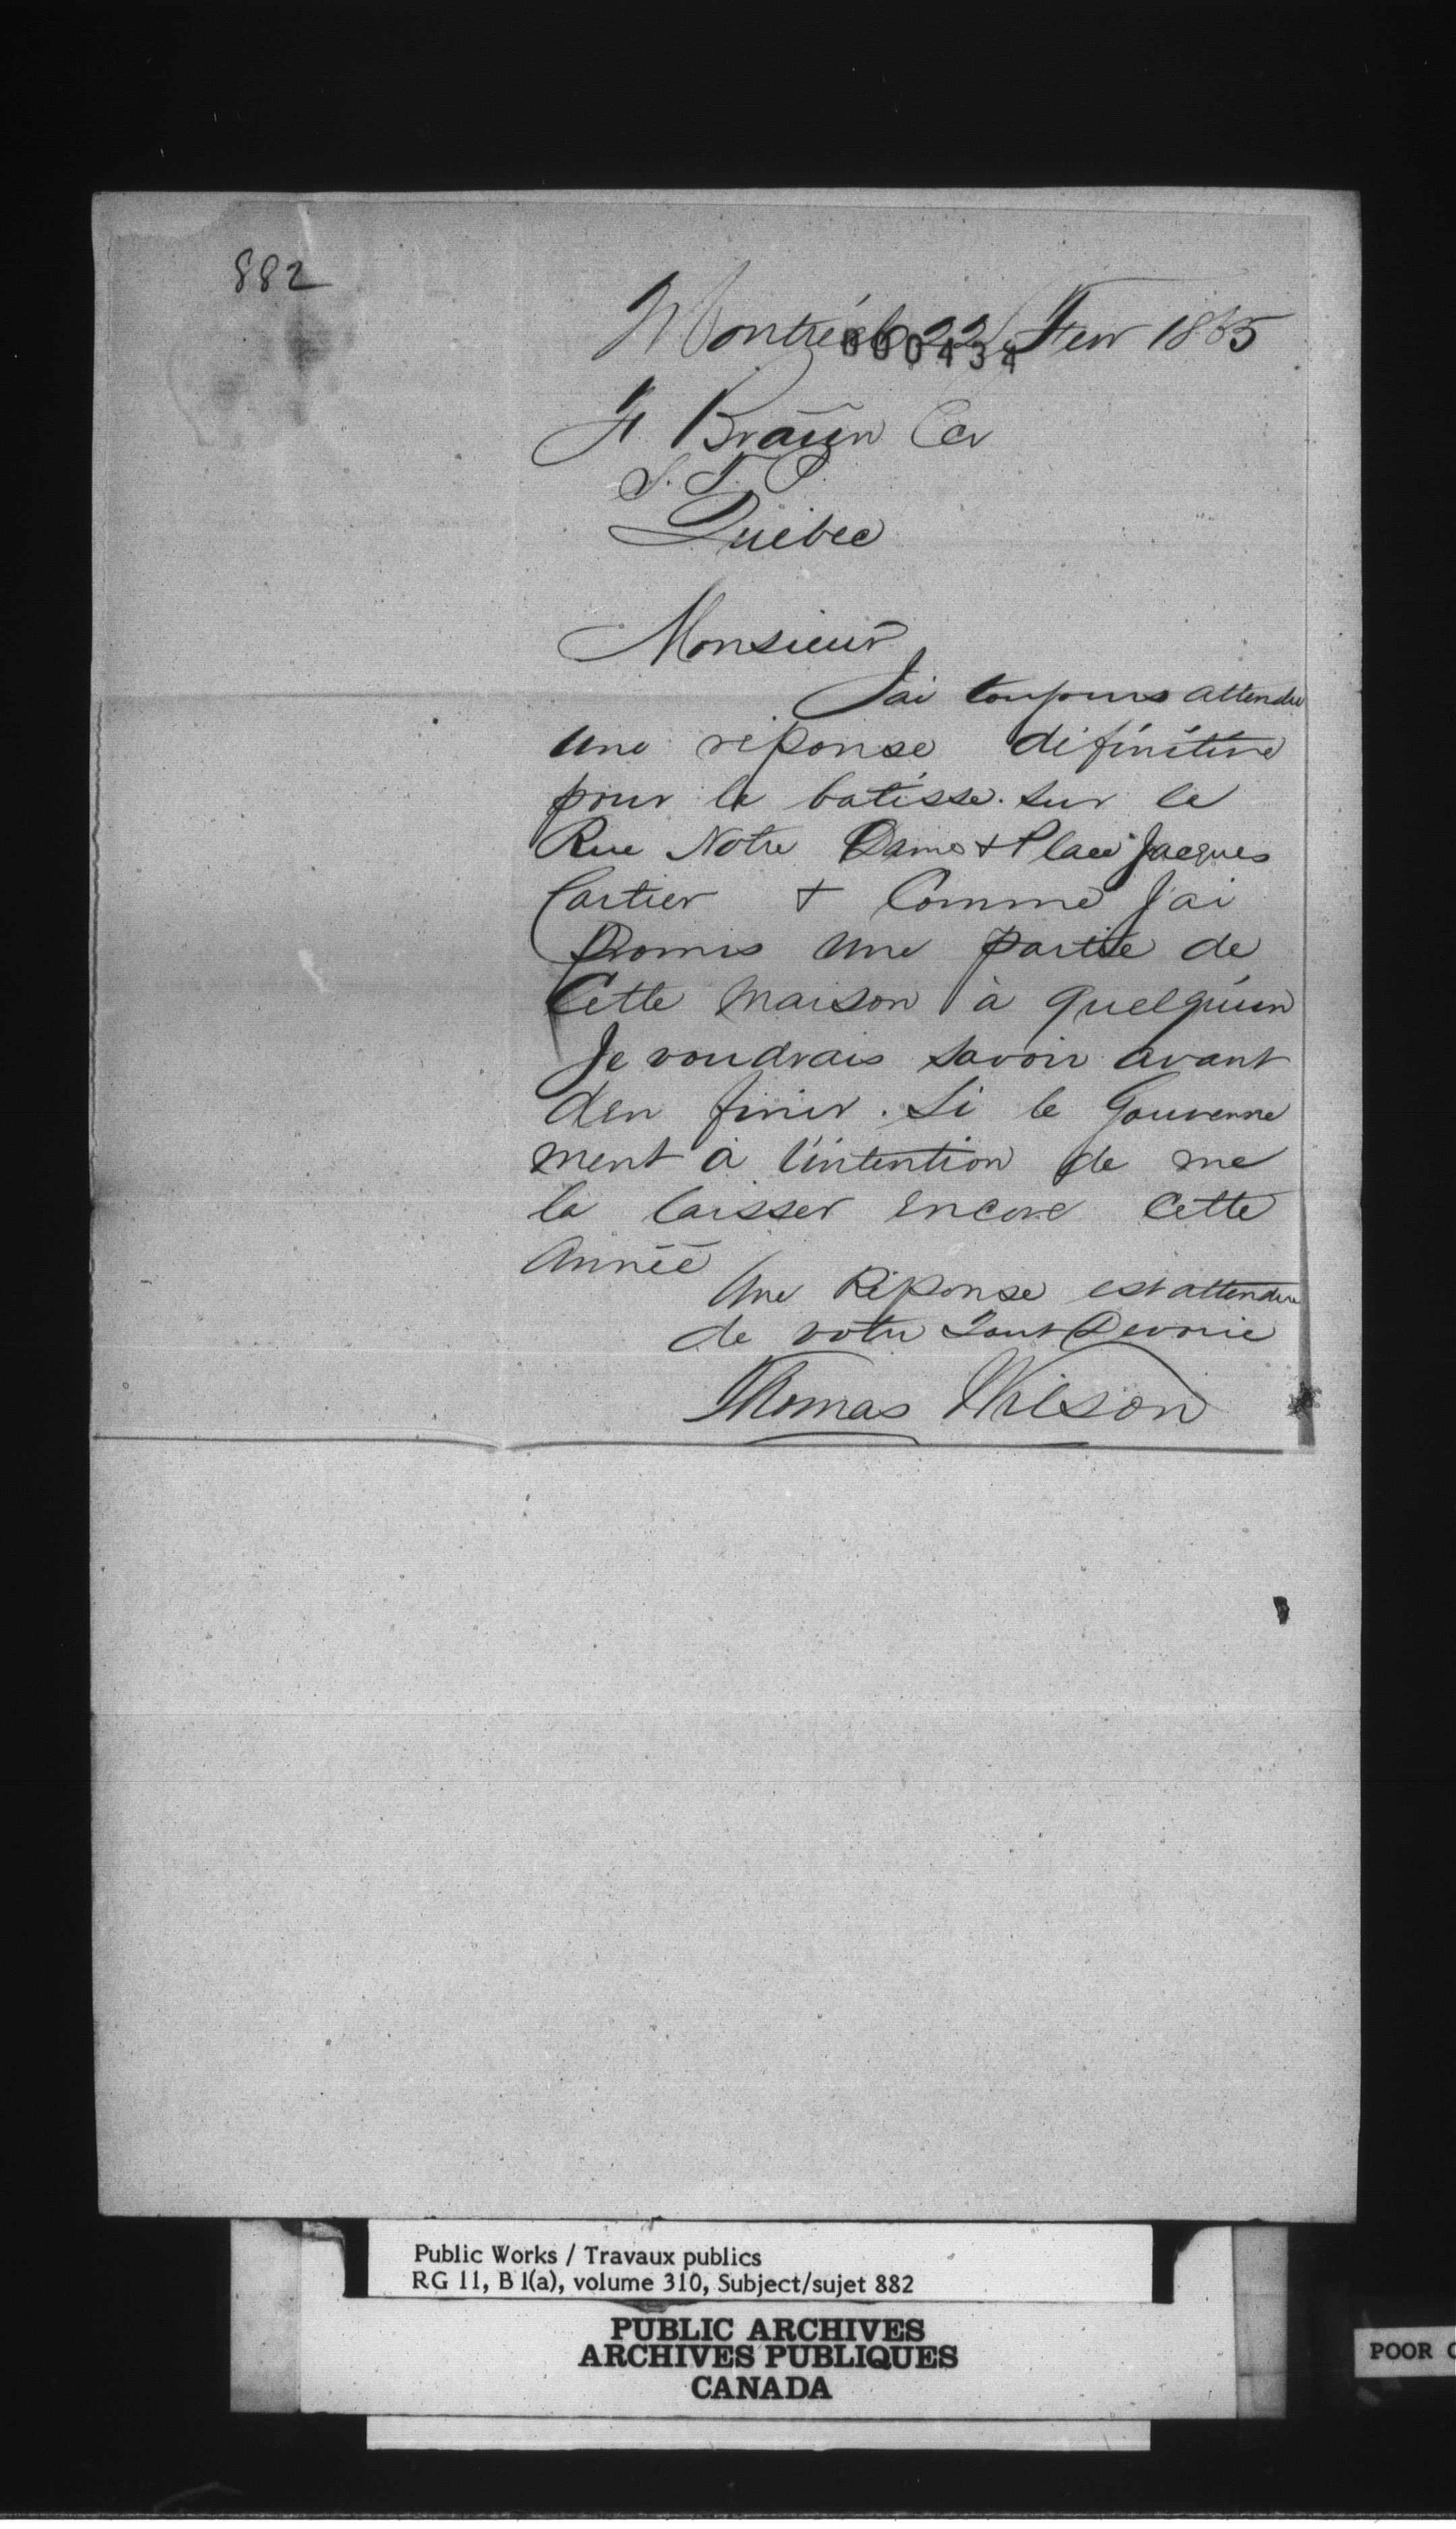 882
Montréal 22 Fevr 1865
000434
F. Braün Ecr
S. T. P.
Québec
Monsieur
J'ai toujours attendu
une réponse définitive
pour la batisse sur la
Rue Notre Dame & Place Jacques
Cartier & Comme J'ai
Promis une partie de
Cette maison à quelqu'un
Je voudrais savoir avant
d'en finir. Si le Gouverne
ment à l'intention de me
la laisser encore cette
Année
Une Réponse est attendue
de votre Tout Devoué
Thomas Wilson
Public Works / Travaux publics
RG 11, B 1(a), volume 310, Subject/sujet 882
PUBLIC ARCHIVES
ARCHIVES PUBLIQUES
CANADA
POOR